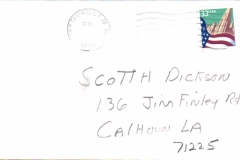 PM
33 USA
SCOTT H DICKSON
136 Jim Finley Rd
CALHOUN LA
71225